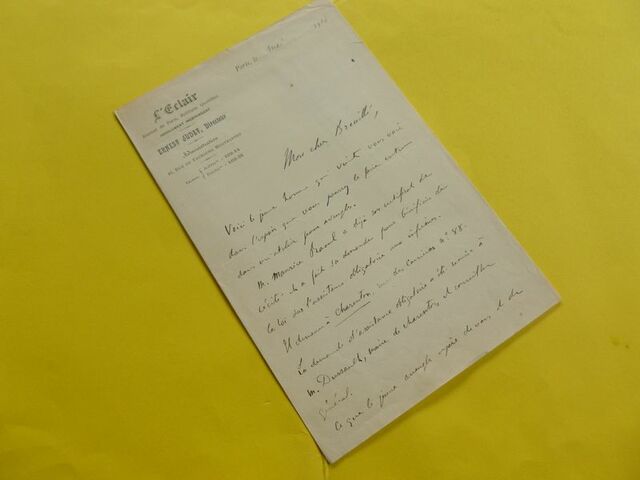 Paris, le Mai
L'Eclair
Journal de Paris, Politique Quotidien
ABSOLUMENT INDÉPENDANT
ERNEST JUDET, Directeur
Administration
Mon cher Breuillé,
Voici le jeune homme qui visite vous voir
dans l'espoir que vous pourrez le faire entrer
dans un atelier pour aveugles.
M. Maurice Raoul a déjà son certificat de
cécité. Il a fait sa demande pour bénéficier de
la loi sur l'assistance obligatoire aux infirmes.
Il demeure à Charenton, rue des Carrières n° 88.
La demande d'assistance obligatoire a été remise à
M. Dussault, maire de Charenton, et conseiller
général.
Ce que le jeune aveugle espère de vous, c'est de